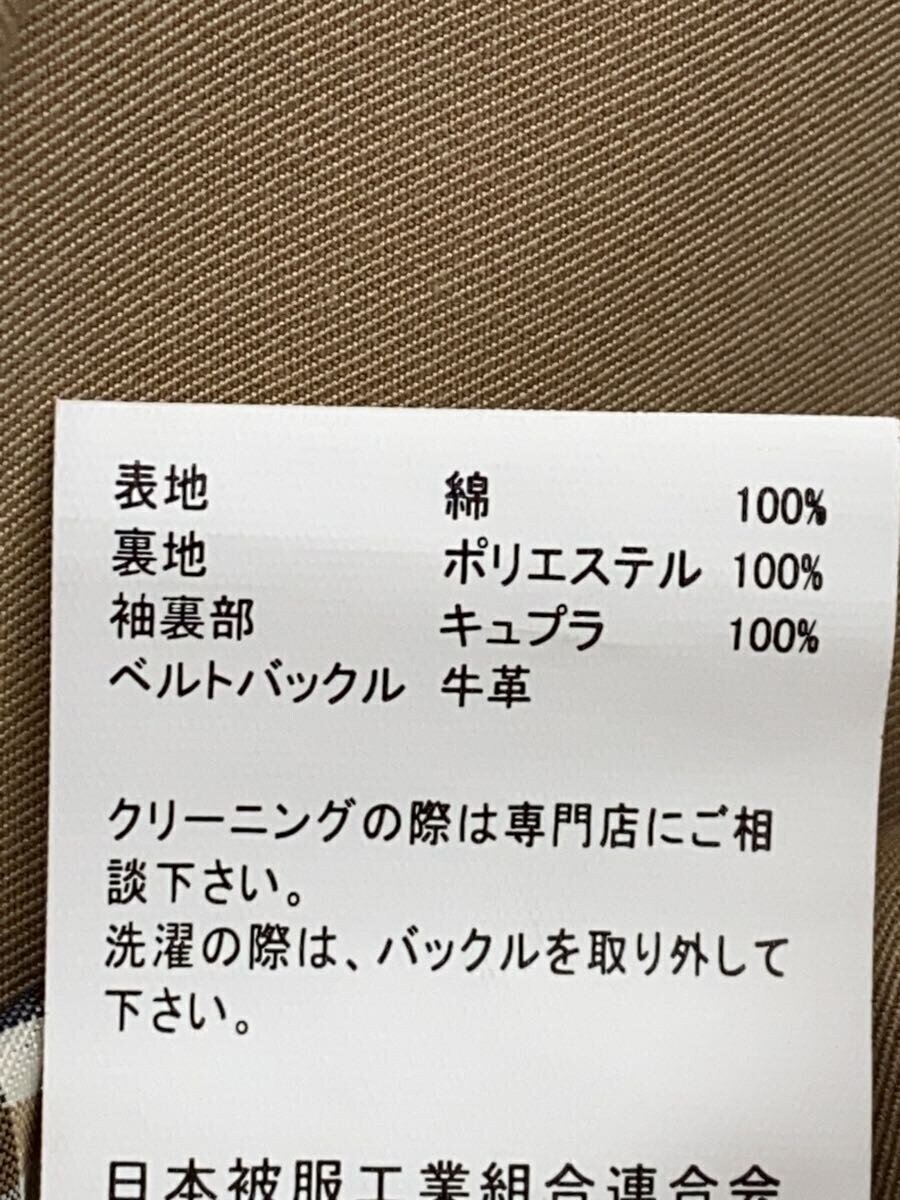 表地 綿 100%
裏地 ポリエステル 100%
袖裏部 キュプラ 100%
ベルトバックル 牛革
クリーニングの際は専門店にご相
談下さい。
洗濯の際は、バックルを取り外して
下さい。
日本被服工業組合連合会